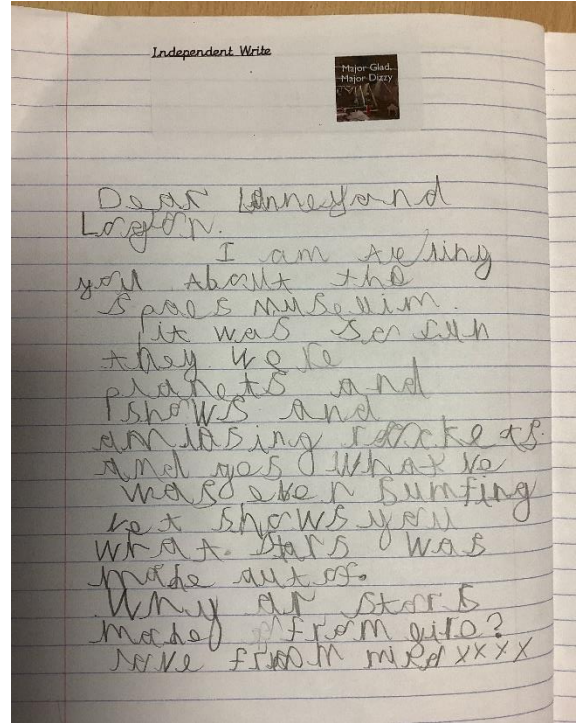 Independent Write
Major Glad,
Major Dizzy
Dear and
Logan.
I am
you About the
Spaes museuim.
it was so fun
they were
planets and
shows and
amiasing rockets.
and yes
was even sumfing
vet shows you
wrat. stars was
made aut of.
Why ar stars
made from
love from xxxx